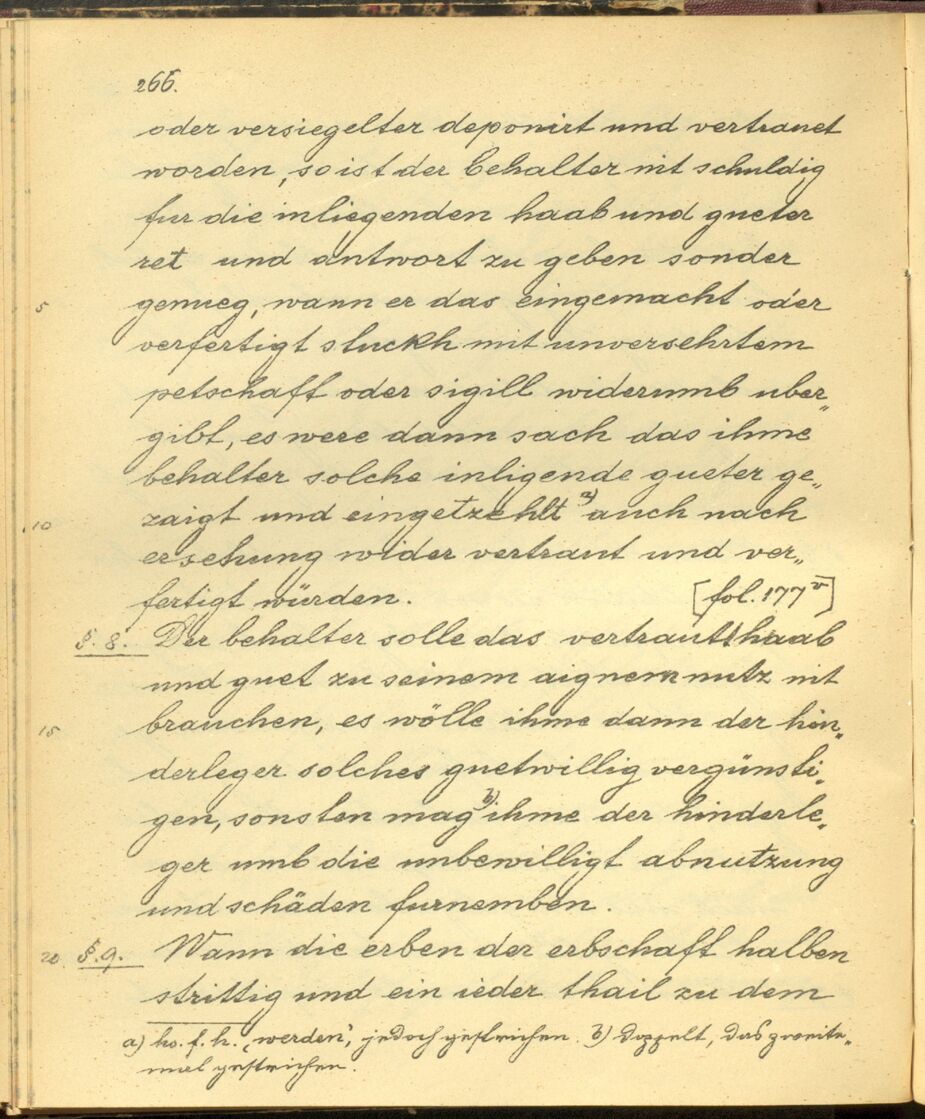 266.
oder versiegelter deponirt und vertrauet
worden, so ist der behalter nit schuldig
fur die inliegenden haab und gueter
ret und antwort zu geben sonder
5 genueg, wann er das eingemacht oder
verfertigt stuckh mit unversehrtem
petschaft oder sigill widerumb uber„
gibt, es were dann sach das ihme
behalter solche inligende gueter ge„
10 zaigt und eingetzehlt a) auch nach
ersehung wider vertraut und ver„
fertigt würden. [fol. 177 v]
§. 8. Der behalter solle das vertraut haab
und guet zu seinem aignem nutz nit
15 brauchen, es wölle ihme dann der hin„
derleger solches guetwillig vergünsti„
gen, sonsten mag b) ihme der hinderle„
ger umb die unbewilligt abnutzung
und schäden furnemben.
20 §. 9. Wann die erben der erbschaft halben
strittig und ein ieder thail zu dem
a) ho. f. h. „werden“, jedoch gestrichen. b) Doppelt, das zweite„
mal gestrichen.